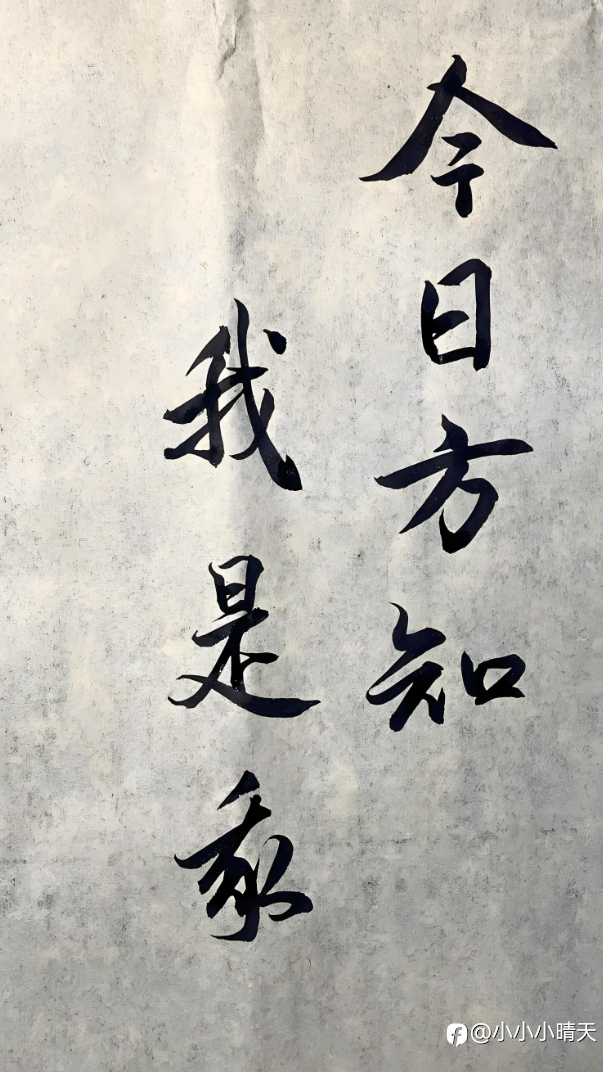 今日方知
我是我
@小小小晴天